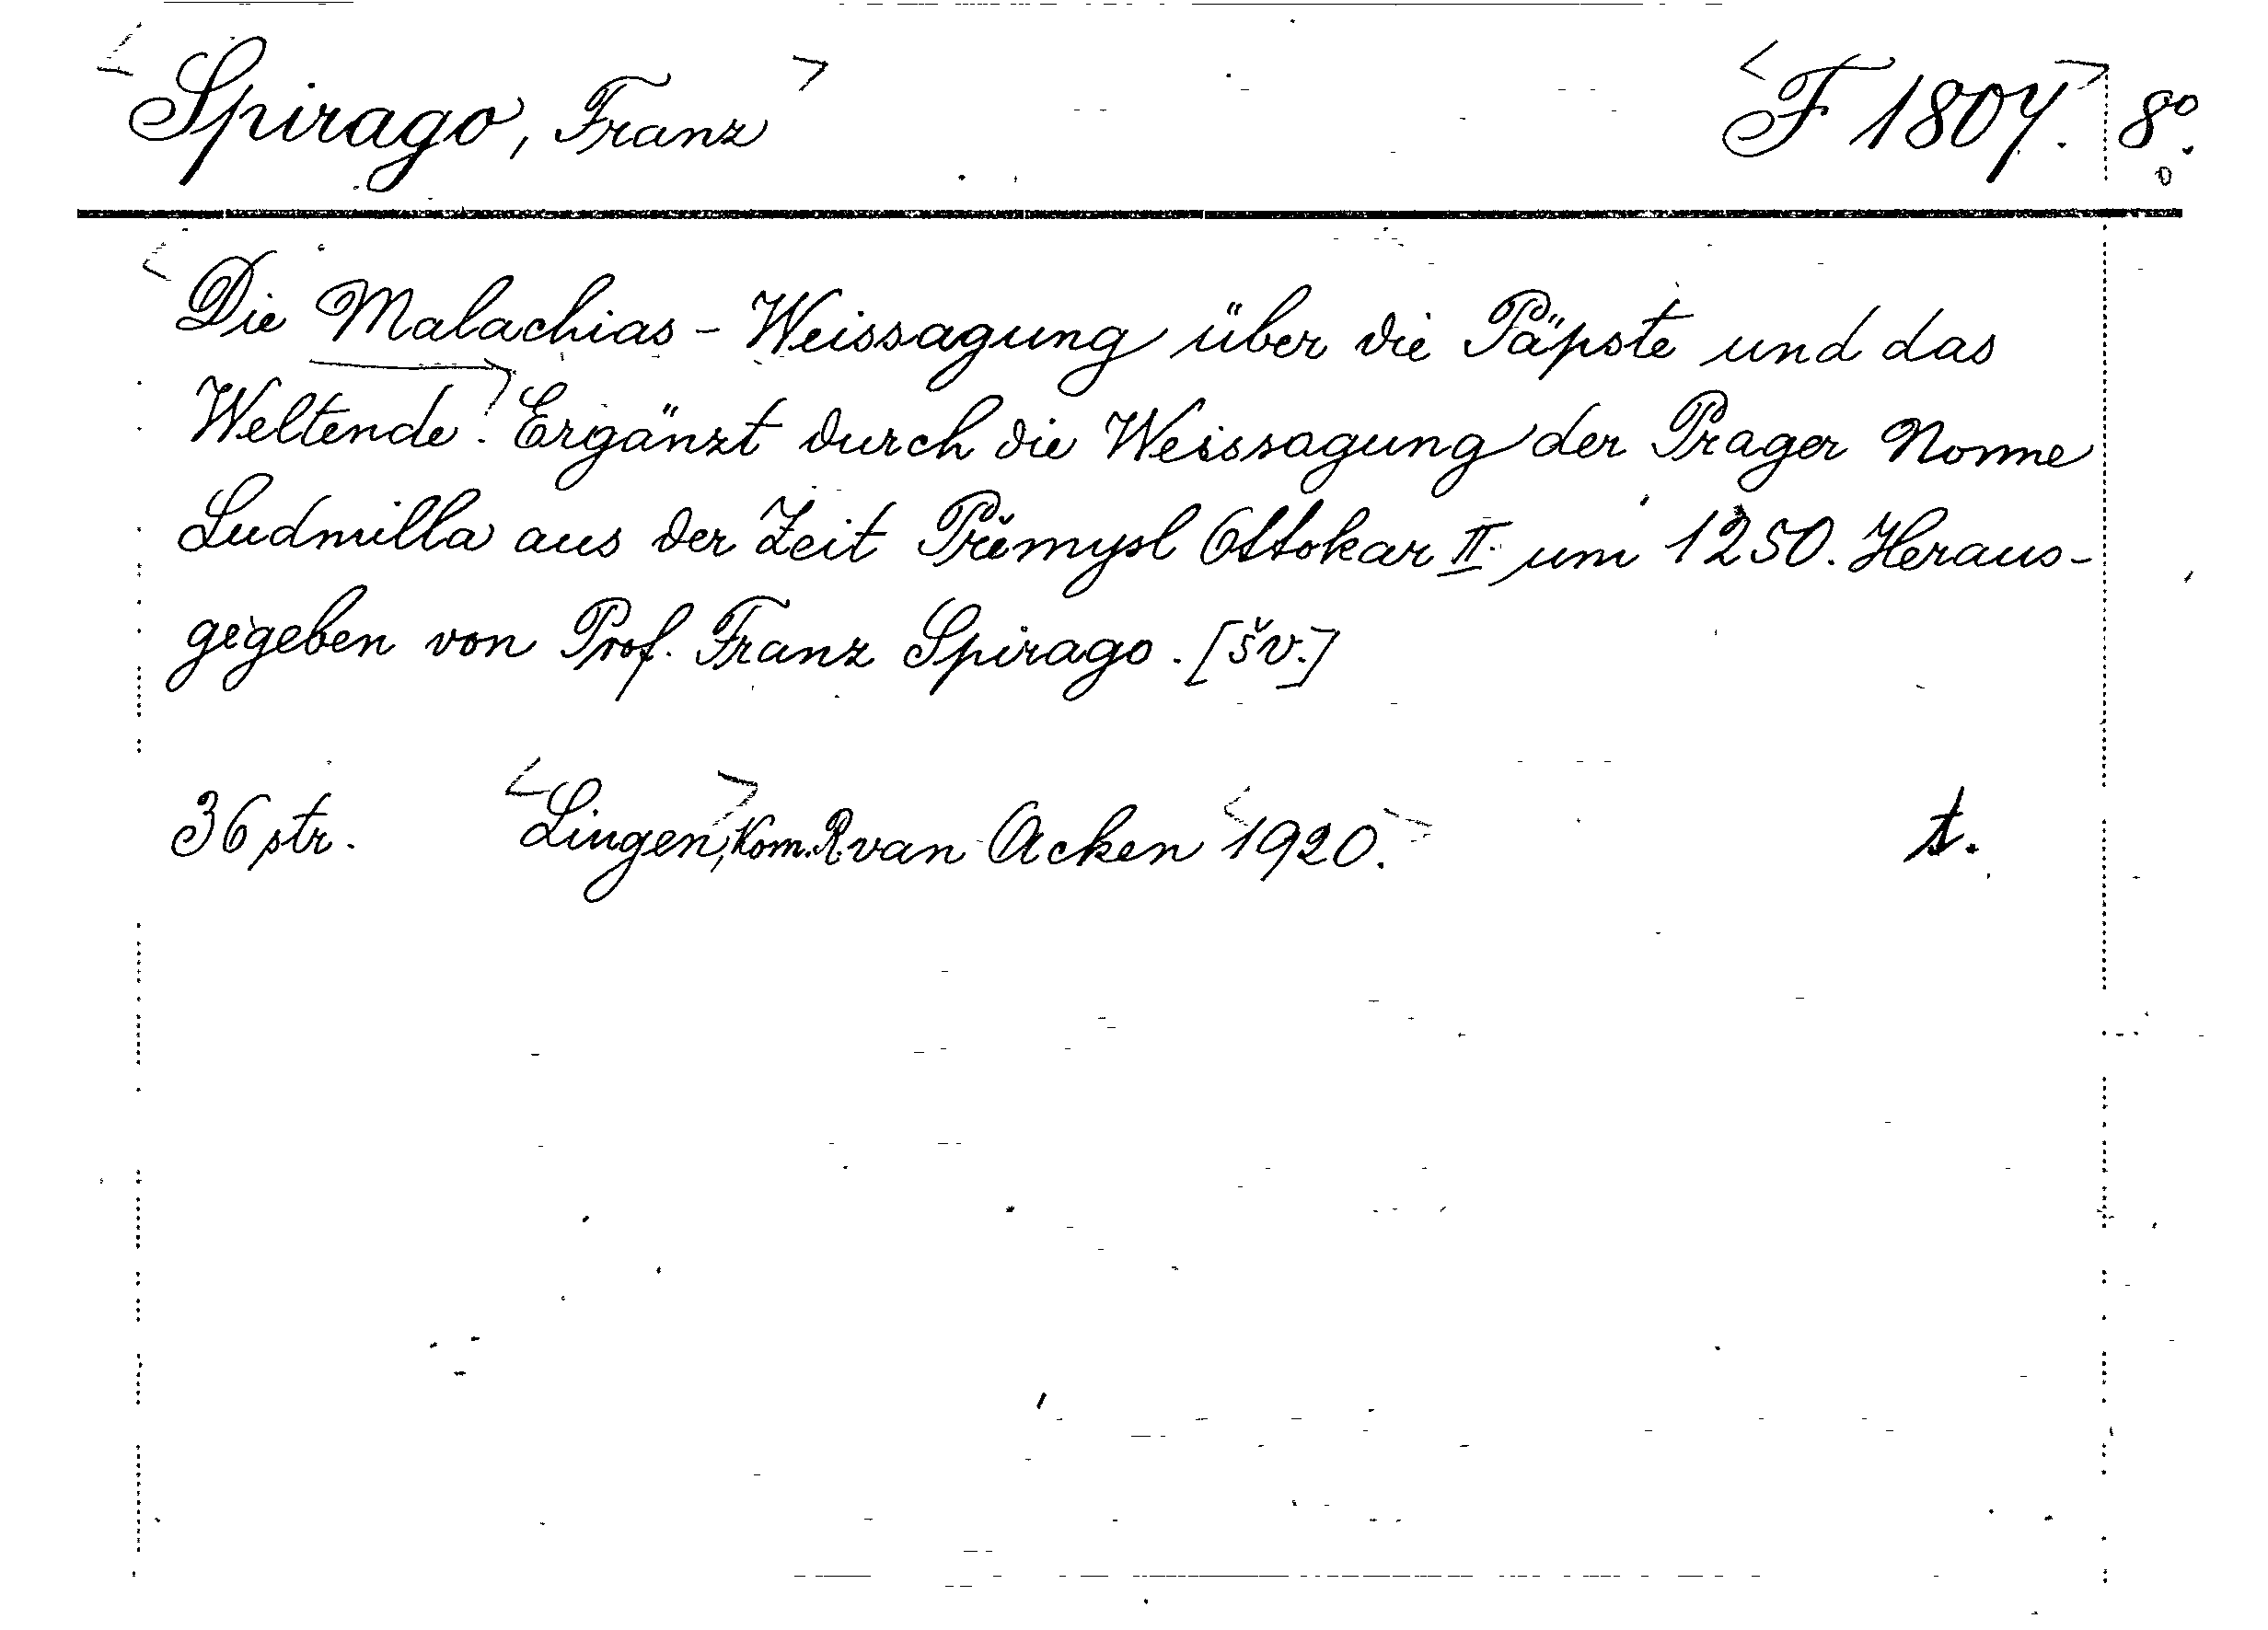 Spirago, Franz F 1807. 8º.
Die Malachias - Weissagung über die Päpste und das
Weltende. Ergänzt durch die Weissagung der Prager Nonne
Ludmilla aus der Zeit Přemysl Ottokar II. um 1250. Heraus-
gegeben von Prof. Franz Spirago. [šv.]
36 str. Lingen, Kom. R. van Acken 1920. t.